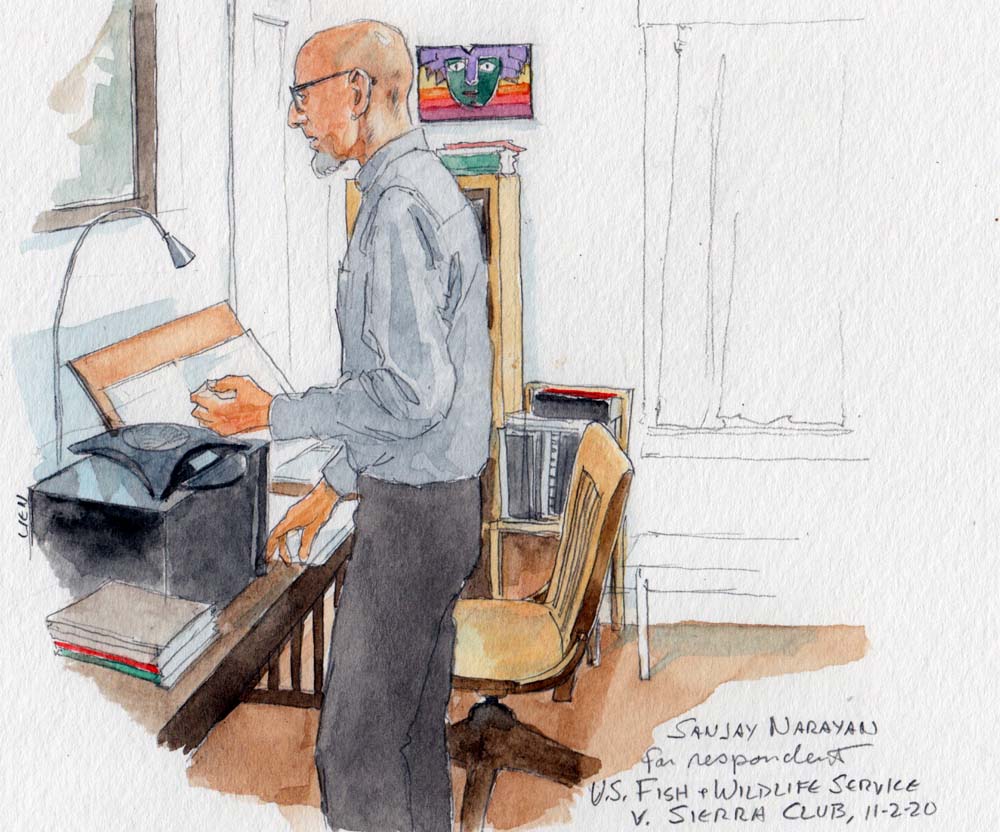 LIEN
SANJAY NARAYAN
for respondent
U.S. FISH + WILDLIFE SERVICE
V. SIERRA CLUB, 11-2-20